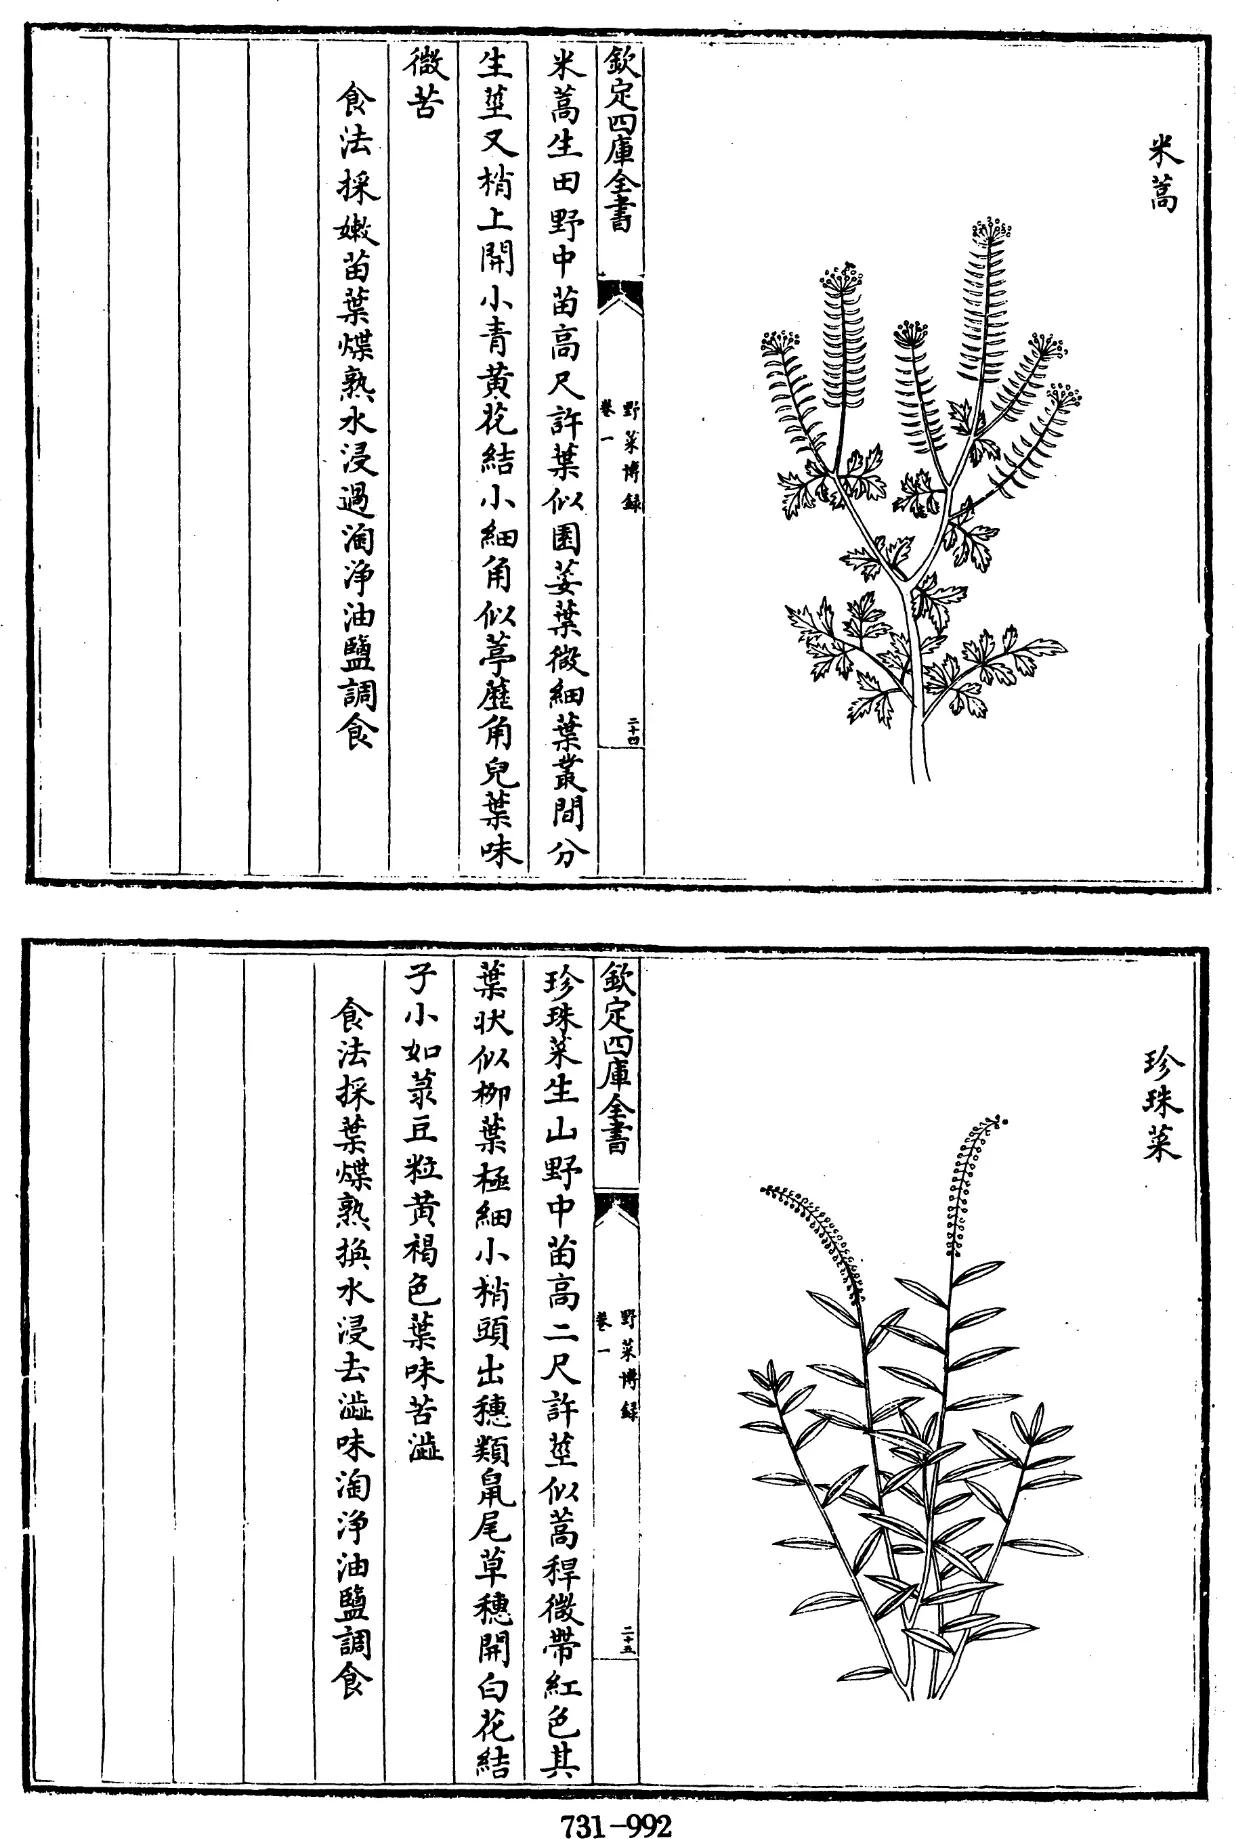 米蒿
欽定四庫全書
野菜博録
卷一
二十四
米蒿生田野中苗高尺許葉似園荽葉微細葉叢間分
生莖叉梢上開小青黄花結小細角似葶藶角兒葉味
微苦
食法採嫩苗葉煠熟水浸過淘浄油鹽調食
珍珠菜
欽定四庫全書
野菜博録
卷一
二十五
珍珠菜生山野中苗高二尺許莖似蒿稈微帶紅色其
葉状似柳葉極細小梢頭出穗類鼠尾草穗開白花結
子小如菉豆粒黄褐色葉味苦澁
食法採葉煠熟換水浸去澁味淘浄油鹽調食
731-992